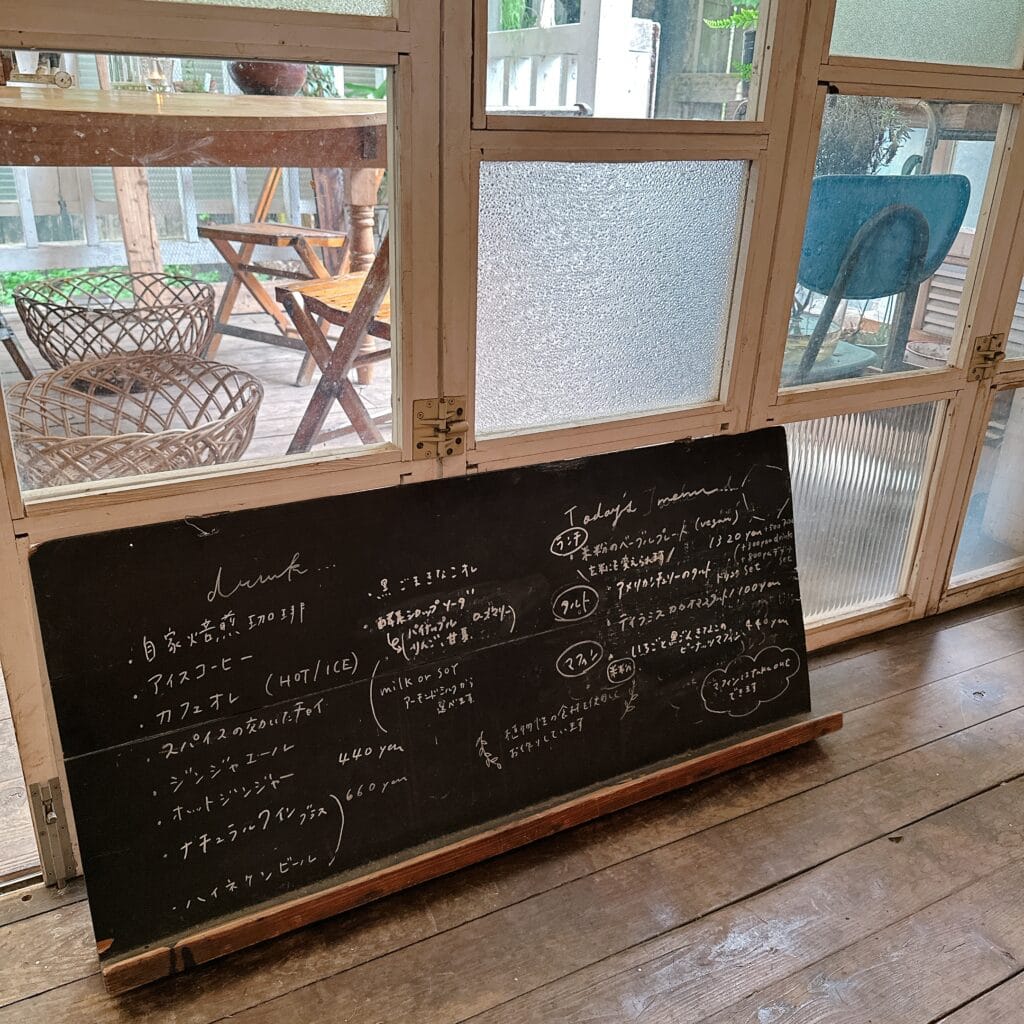 drink...
・自家焙煎 珈琲
・アイスコーヒー
・カフェオレ (HOT/ICE)
・スパイスの効いたチャイ
・ジンジャエール
・ホットジンジャー 440 yen
・ナチュラルワイン グラス
・ハイネケンビール
660 yen
・黒ごまきなこオレ
・自家製シロップ ソーダ
パイナップル ローズマリー
りんご、甘夏
milk or soy
アーモンドミルクから
選べます
植物性の食材を使用して
お作りしています
Today's menu...
ランチ
米粉のベーグルプレート (vegan)
1320 yen
+300yen drink set
タルト
・アメリカンチェリーのタルト
・ティラミス
1100yen
マフィン
米粉
・いちごと黒ごまきなこの
440 yen
マフィンはTAKE OUT
できます